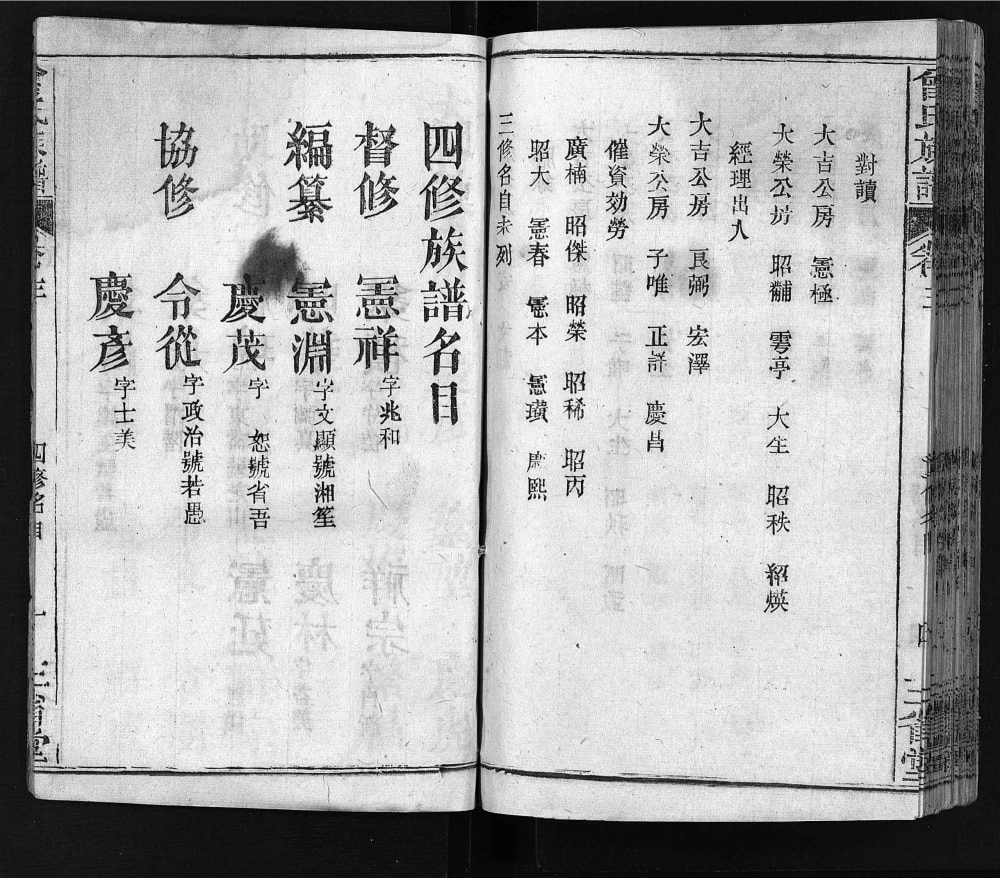 曾氏族譜
卷之三
三省堂
對讀
大吉公房 憲極
大榮公房 昭黼 雩亭 大生 昭秩 紹煐
經理出入
大吉公房 良弼 宏澤
大榮公房 子唯 正詳 慶昌
催資効勞
廣楠 昭傑 昭榮 昭稀 昭丙
昭大 憲春 憲本 憲璜 慶熙
三修名目未列
四修族譜名目
督修 憲祥字兆和
編纂 憲淵字文顯號湘笙
慶茂字 恕號省吾
協修 令從字政治號若愚
慶彥字士美
四修名目
一
三省堂